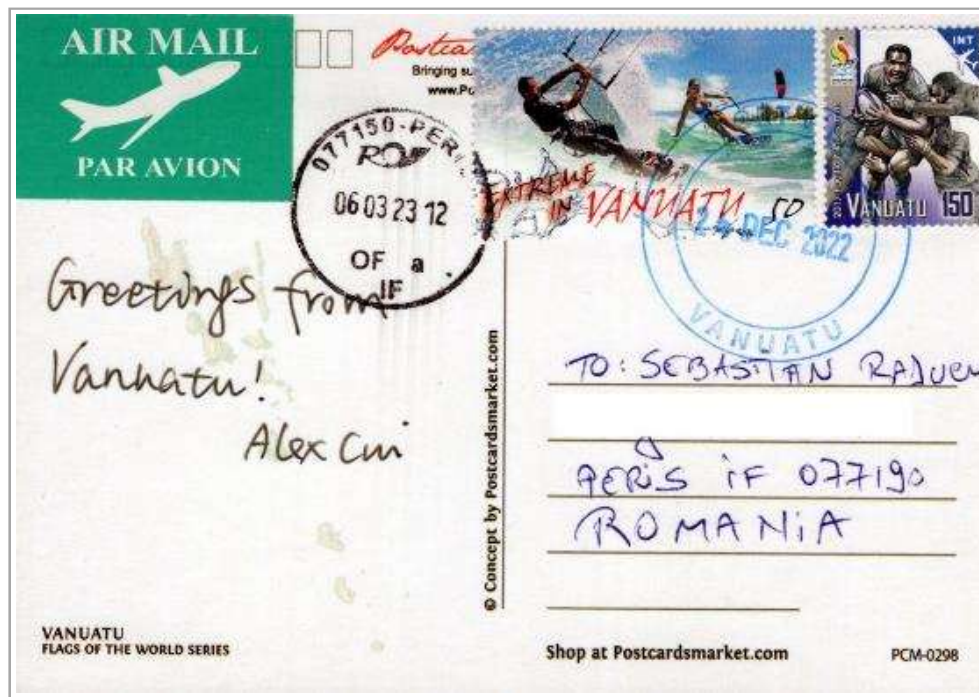 AIR MAIL
PAR AVION
Postca
Bringing su
www.Po
077150-PERI
06 03 23 12
OF a
IF
EXTREME
IN VANUATU 50
INT
VANUATU 150
DEC 2022
VANUATU
Greetings from
Vanuatu!
Alex Cui
© Concept by Postcardsmarket.com
TO: SEBASTIAN
PERIS IF 077190
ROMANIA
VANUATU
FLAGS OF THE WORLD SERIES
Shop at Postcardsmarket.com
PCM-0298